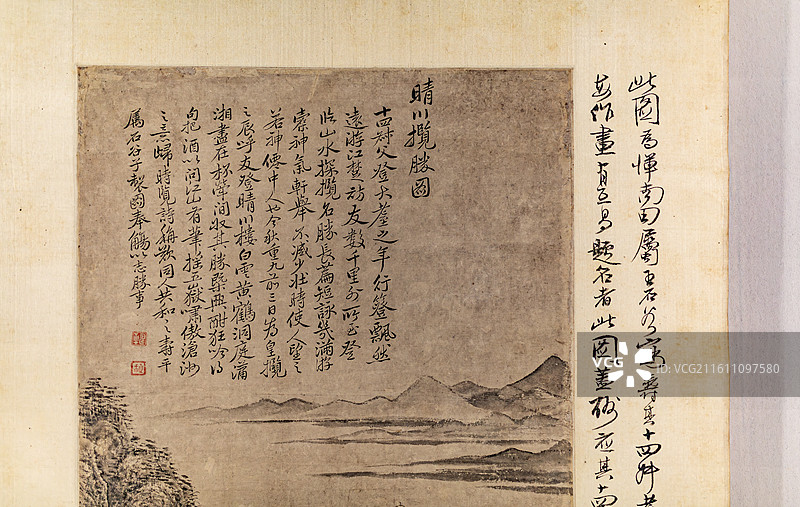 晴川攬勝圖
十四叔父登大耋之年行簦飄然
遠游江楚訪友數千里外所至登
臨山水探攬名勝長篇短詠幾滿游
橐神氣軒舉不減少壯時使人望之
若神僊中人也今秋重九前三日為皇攬
之辰呼友登晴川樓白雲黃鶴洞庭瀟
湘盡在杯斝間收其勝槩西酣狂吟得
句把酒以問江山有筆搖五嶽嘯傲滄洲
之意歸時覽詩稱歎同人共和之壽平
屬石谷子製圖奉觴以志勝事
此圖為惲南田屬王石谷寫壽其十四叔
畫有互易題名者此圖畫
應其十四
VCG211611097580